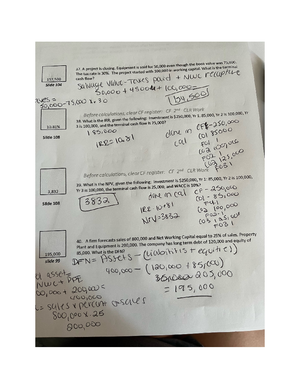 37. A project is closing. Equipment is sold for 50,000 even though the book value was 75,000.
The tax rate is 30%. The project started with 100,000 in working capital. What is the terminal
cash flow?
157,500
Slide 104
Salvage value - taxes paid + NWC recapture
50,000 + 4500 + 100,000 =
154,500
50,000 - 75,000 x .30
Before calculations, clear CF register: CF 2nd CLR Work
38. What is the IRR, given the following: Investment is $250,000, Yr 1 85,000, Yr 2 is 100,000, Yr
3 is 100,000, and the terminal cash flow is 25,000?
185,000
done in
cal
IRR =
CF0 - 250,000
C01 85000
F01 1
C02 100,000
F02 1
125,000
Slide 108
Before calculations, clear CF register: CF 2nd CLR Work
39. What is the NPV, given the following: Investment is $250,000, Yr 1- 85,000, Yr 2 is 100,000,
Yr 3 is 100,000, the terminal cash flow is 25,000, and WACC is 10%?
3,832
Slide 108
3832
done in cal
NPV = 3832
CF - 250,000
C01 - 85,000
F01 1
C02 100,000
F02 - 1
F03 1
40. A firm forecasts sales of 800,000 and Net Working Capital equal to 25% of sales. Property
Plant and Equipment is 200,000. The company has long term debt of 120,000 and equity of
85,000. What is the DFN?
195,000
Slide 99
DFN = Assets - (liabilities + equities)
400,000 - (120,000 + 85,000)
205,000
= 195,000
NWC + PPE
200,000 =
400,000
= sales x percent of sales
800,000 x .25
200,000